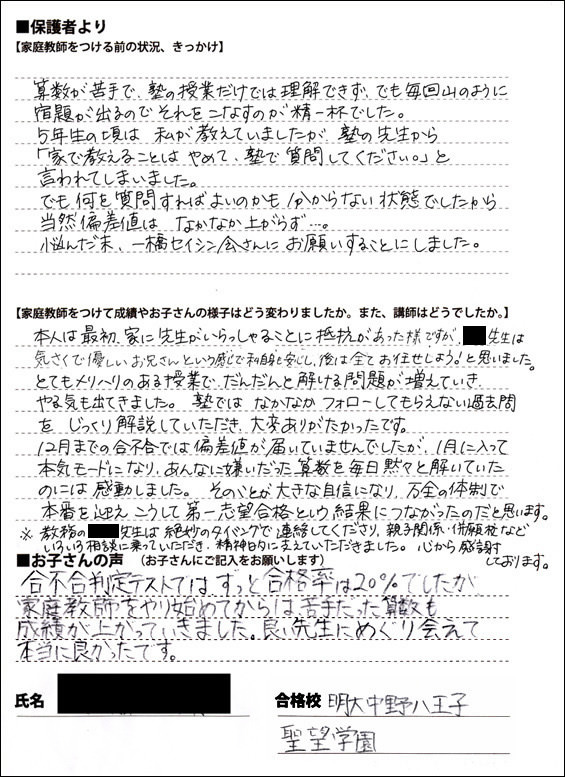 ■保護者より
【家庭教師をつける前の状況、きっかけ】
算数が苦手で、塾の授業だけでは理解できず、でも毎回山のように
宿題が出るのでそれをこなすのが精一杯でした。
5年生の頃は 私が教えていましたが 塾の先生から
「家で教えることは やめて、塾で質問してください。」と
言われてしまいました。
でも何を質問すればよいのかも 分からない状態でしたから
当然偏差値は なかなか上がらず…。
悩んだ末、一橋セイシン会さんに お願いすることにしました。
【家庭教師をつけて成績やお子さんの様子はどう変わりましたか。また、講師はどうでしたか。】
本人は最初、家に先生がいらっしゃることに抵抗があった様ですが、先生は
気さくで優しいお兄さんという感じで 私自身も安心し、後は全てお任せしよう!と思いました。
とてもメリハリのある授業で、だんだんと解ける問題が増えていき
やる気も出てきました。塾では なかなかフォローしてもらえない過去問
を じっくり解説していただき、大変ありがたかったです。
12月までの合不合では偏差値が届いていませんでしたが、1月に入って
本気モードになり、あんなに嫌いだった算数を毎日黙々と解いていた
のには 感動しました。そのことが大きな自信になり、万全の体制で
本番を迎え こうして第一志望合格という結果につながったのだと思います。
※ 教務の 先生は 絶妙のタイミングで連絡してくださり、親子関係・併願校など
いろいろ相談に乗っていただき、精神的に支えていただきました。心から感謝
しております。
■お子さんの声 (お子さんにご記入をお願いします)
合不合判定テストではずっと合格率は20%でしたが
家庭教師をやり始めてからは苦手だった算数も
成績が上がっていきました。良い先生にめぐり会えて
本当に良かったです。
氏名
合格校 明大中野八王子
聖望学園